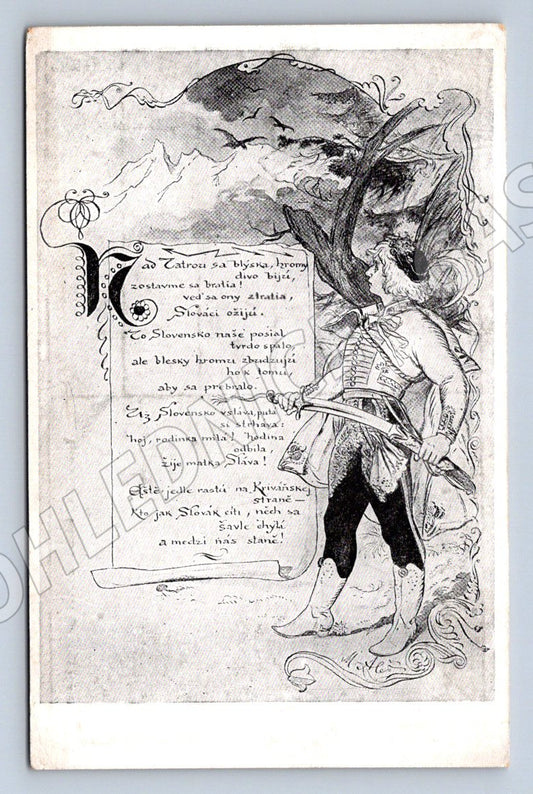 Nad Tatrou sa blýska, hromy
divo bijú,
zostavme sa bratia!
veď sa ony ztratia,
Slováci ožijú.
To Slovensko naše posiaľ
tvrdo spalo,
ale blesky hromu zbudzujú
ho k tomu,
aby sa prebralo.
Už Slovensko vstáva, putá
si strháva:
hoj, rodinka milá! hodina
odbila,
žije matka, Sláva!
Ešte jedle rastú na Kriváňskej
strane —
Kto jak Slovák cíti, nech sa
šavle chýli
a medzi nás stane!